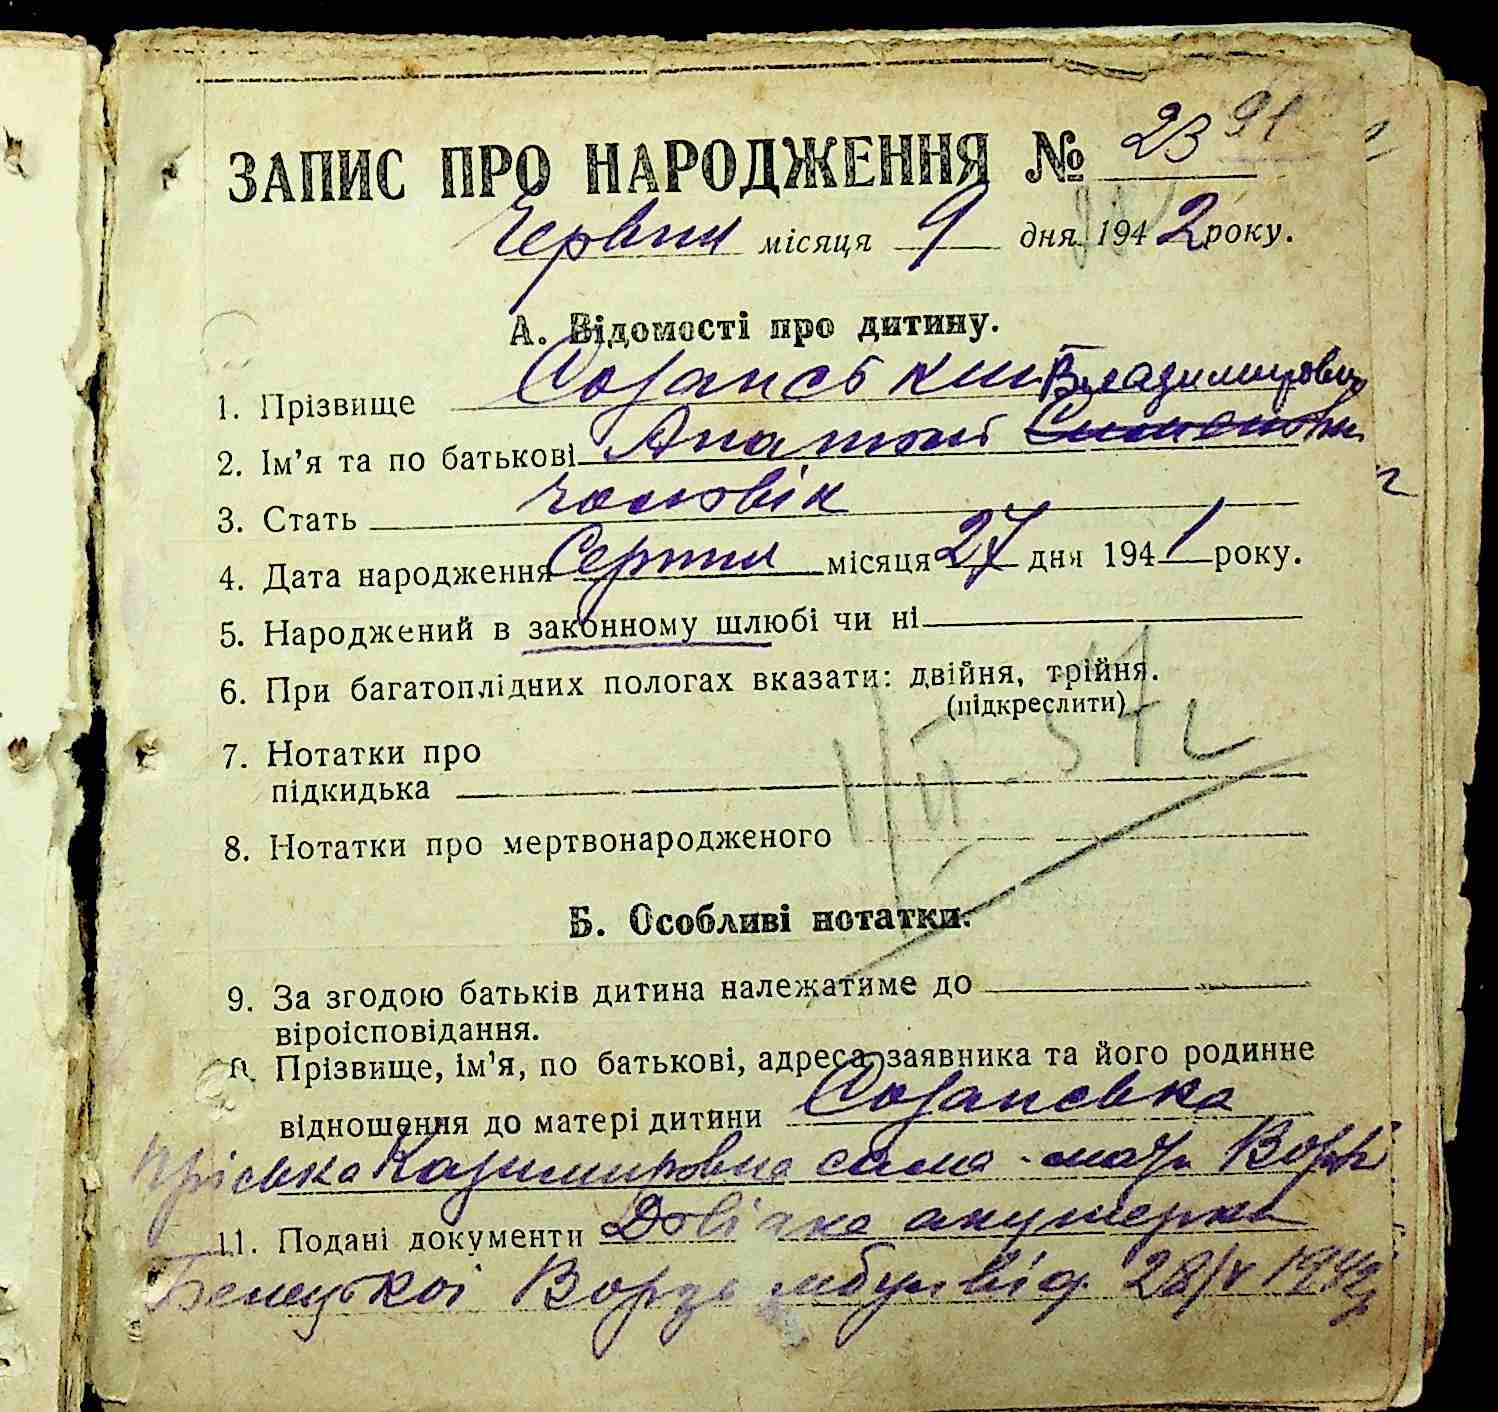 ЗАПИС ПРО НАРОДЖЕННЯ № 23 91
Червня місяця 9 дня 1942 року.
А. Відомості про дитину.
1. Прізвище Созанський Владимирович
2. Ім'я та по батькові Анатолій
3. Стать чоловік
4. Дата народження Серпня місяця 27 дня 1941 року.
5. Народжений в законному шлюбі чи ні
6. При багатоплідних пологах вказати: двійня, трійня.
(підкреслити)
7. Нотатки про
підкидька
8. Нотатки про мертвонародженого
Б. Особливі нотатки.
9. За згодою батьків дитина належатиме до
віроісповідання.
Прізвище, ім'я, по батькові, адреса заявника та його родинне
відношення до матері дитини Созанська
Казимировна сама - мать
11. Подані документи Довідка акушерки
від 28/V 1942